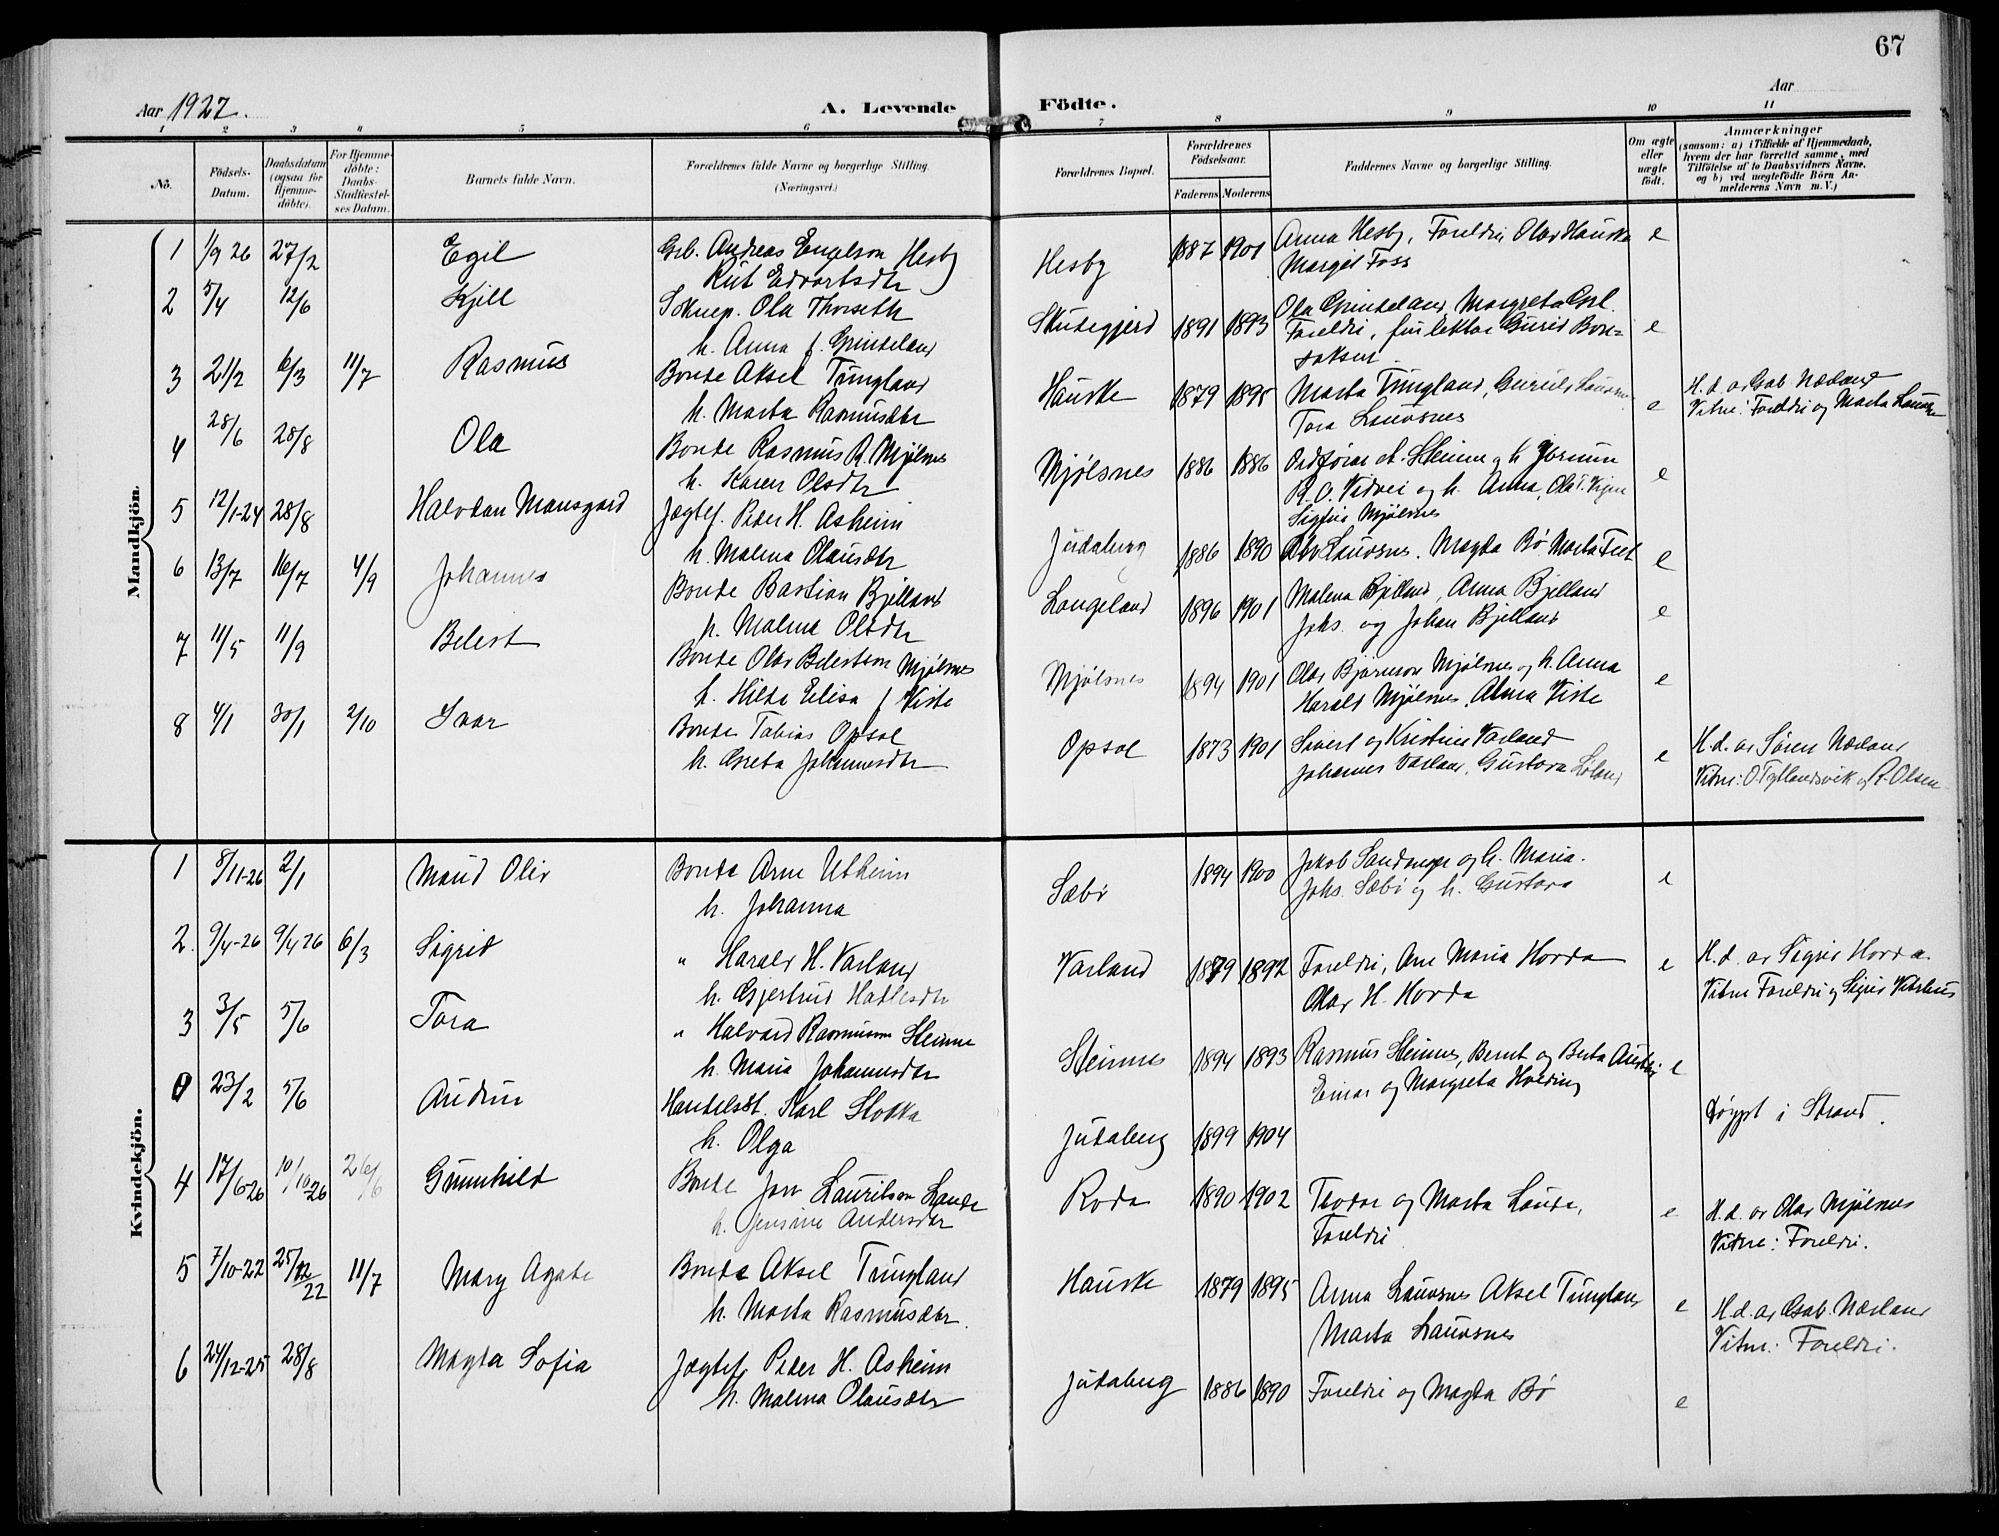 67
Aar 1927.
A. Levende Födte.
Aar
1 2 3 4 5 6 7 8 9 10 11
No.
Födsels-Datum.
Daabsdatum (ogsaa for Hjemmedöbte).
For Hjemmedöbte: Daabs-Stadfæstelses Datum.
Barnets fulde Navn.
Forældrenes fulde Navne og borgerlige Stilling. (Næringsvei.)
Forældrenes Bopæl.
Forældrenes Födselsaar.
Faderens Moderens
Faddernes Navne og borgerlige Stilling.
Om ægte eller uægte födt.
Anmærkninger
(saasom: a) i Tilfælde af Hjemmedaab, hvem der har forrettet samme, med Tilföielse af to Daabsvidners Navne, og b) ved uægtefödte Börn Anmelderens Navn m. V.)
Mandkjön.
1 1/9 26 27/2 Egil Grb. Andreas Engelson Hesby Hesby 1887 1901 Anna Hesby, Foreldri, Olav Hauske e
Rut Edvartsdtr Margit Foss
2 5/4 12/6 Kjell Ola Thorseth Skudegjerd 1891 1893 Ola Grindeland, Margreta
h. Anna f. Grindeland Foreldri, e
3 21/2 6/3 11/7 Rasmus Bonde Aksel Tungland Hauske 1879 1895 Marta Tungland, e H.d. av Gab. Nædland
h. Marta Rasmusdtr Tora Lauvsnes Vitne: Foreldri og Marta
4 28/6 28/8 Ola Bonde Rasmus R. Mjølsnes Mjølsnes 1886 1886 Ordførar Steinnes og h. e
h. Karen Olsdtr R. O. og h. Anna,
Mjølsnes
5 12/1-24 28/8 Halvdan Mansgard Jægtef. Peder H. Asheim Judaberg 1886 1890 Lauvsnes. Magda Bø e
h. Malena Olausdtr
6 13/7 16/7 4/9 Johannes Bonde Bastian Bjelland Langeland 1896 1901 Malena Bjelland, Anna Bjelland e
h. Malena Olsdtr Johs. og Johan Bjelland
7 11/5 11/9 Belest Bonde Olav Belestson Mjølsnes Mjølsnes 1894 1901 Olav Bjørnson Mjølsnes og h. Anna e
h. Hilda Elisa f Viste Harald Mjølsnes, Alma Viste
8 4/1 30/1 2/10 Ivar Bonde Tobias Opsal Opsal 1873 1901 Sivert og Kristine Varland e H.d. av Søren Nærland
h. Greta Johannesdtr Johannes Varland, Gustava Vitne: O. Tytlandsvik og R. Olsen
Kvindekjön.
1 8/11-26 2/1 Maud Oliv Bonde Arne Utheim Sæbø 1894 1900 Jakob Sandanger og h. Maria. e
h. Johanna Johs. Sæbø og h. Gustava
2. 9/4-26 9/4 26 6/3 Sigrid " Harald H. Varland Varland 1879 1892 Foreldri, Ane Maria Hovda e H.d. av Sigrid Hovda.
h. Gjertrud Halvesdtr Olav H. Hovda Vitne Foreldri og Sigrid
3 3/5 5/6 Tora " Halvard Rasmusson Steinnes Steinnes 1894 1893 Rasmus Steinnes, Bernt og Berta e
h. Maria Johannesdtr Einar og Margreta
0 23/2 5/6 Audun Handelsst. Karl Judaberg 1899 1904 Døypt i Strand.
h. Olga
4 17/6-26 10/10 26 26/6 Gunnhild Bonde Jon Lauritson Lande Roda 1890 1902 Teodor og Marta Lande, e H.d. av Olav Mjølsnes
h. Jensine Andersdtr Foreldri Vitne: Foreldri.
5 7/10-22 25/12 22 11/7 Mary Agate Bonde Aksel Tungland Hauske 1879 1895 Anna Lauvsnes Aksel Tungland e H.d. av Gab. Nærland
h. Marta Rasmusdtr. Marta Lauvsnes Vitne: Foreldri.
6 24/12-25 28/8 Magda Sofia Jægtef Peder H. Asheim Judaberg 1886 1890 Foreldri og Magda Bø e
h. Malena Olausdtr